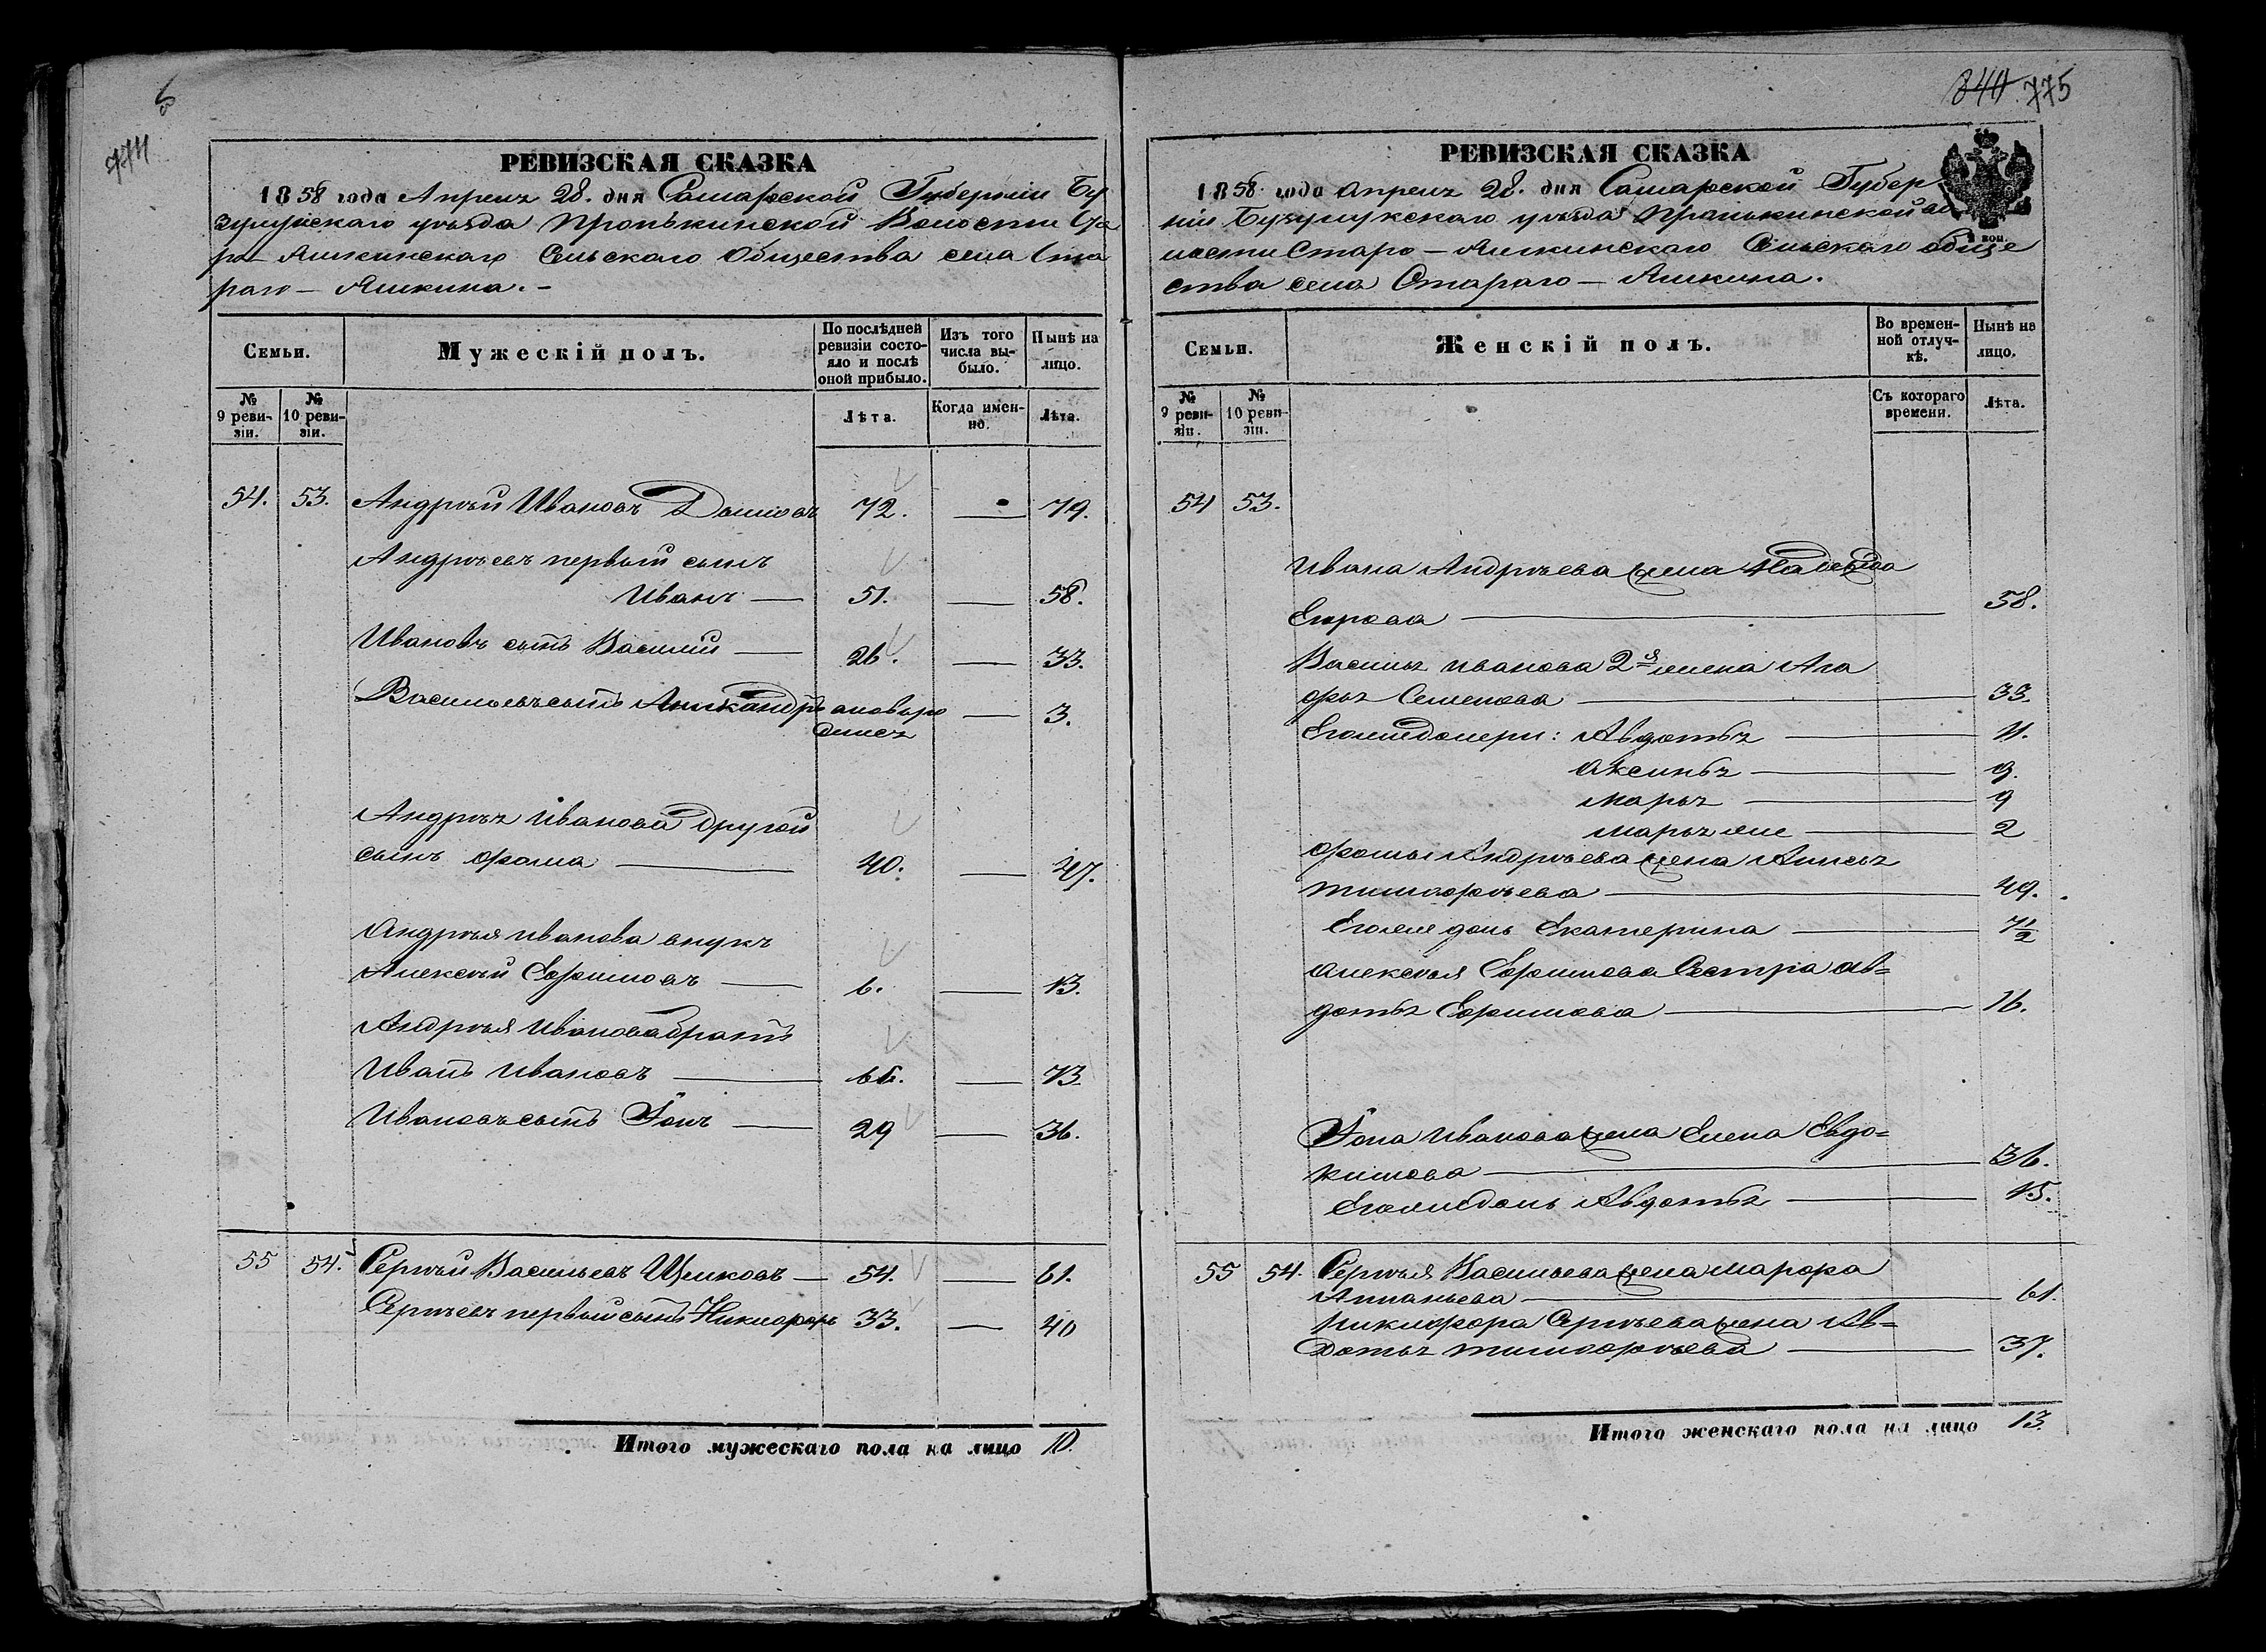 774
РЕВИЗСКАЯ СКАЗКА
1858 года Апреля 28. дня Самарской Губерніи Бу
зулукскаго уѣзда Пронькинской Волости Ста
ро - Яшкинскаго Сельскаго Общества села Ста
раго - Яшкина. -
Семьи.
Мужескій полъ.
По послѣдней ревизіи состояло и послѣ оной прибыло.
Изъ того числа выбыло.
Нынѣ на лицо.
№ 9 ревизіи.
№ 10 ревизіи.
Лѣта.
Когда именно.
Лѣта.
54. 53. Андрѣй Ивановъ 72. — 79.
Андрѣевъ первый сынъ
Иванъ — 51. — 58.
Ивановъ сынъ Василий — 26. — 33.
Васильевъ сынъ Александръ вновь ро — 3.
дился
Андрѣя Иванова другой
сынъ Фома — 40. — 47.
Андрѣя Иванова внукъ
Алексѣй Ефимовъ — 6. — 13.
Андрѣя Иванова братъ
Иванъ Ивановъ — 66. — 73
Ивановъ сынъ Іонъ — 29 — 36.
55 54. Сергѣй Васильевъ Щелковъ — 54. — 61.
Сергѣевъ первый сынъ Никифоръ 33. — 40
Итого мужескаго пола на лицо 10.
840 775
РЕВИЗСКАЯ СКАЗКА
1858 года Апреля 28. дня Самарской Губер
ніи Бузулукскаго уѣзда Пронькинской во
лости Старо - Яшкинскаго Сельскаго обще
ства села Стараго - Яшкина.
Семьи.
Женскій полъ.
Во временной отлучкѣ.
Нынѣ на лицо.
№ 9 ревизіи.
№ 10 ревизіи.
Съ котораго времени.
Лѣта.
54 53.
Ивана Андрѣева жена Надежда
Егорова — 58.
Василья Иванова 2я жена Ага
фья Семенова — 33.
Его же дочери: Авдотья — 11.
Аксинья — 9.
Марья — 9
Марья же — 2
Фомы Андрѣева жена Анисья
Тимофѣева — 49.
Его же дочь Екатерина — 7 1/2
Алексѣя Ефимова Сестра Ав=
дотья Ефимова — 16.
Іона Иванова жена Елена Евдо=
кимова — 36.
Его же дочь Авдотья — 15.
55 54. Сергѣя Васильева жена Марфа
Ананьева — 61.
Никифора Сергѣева жена Ав=
дотья Тимофѣева — 37.
Итого женскаго пола на лицо 13.